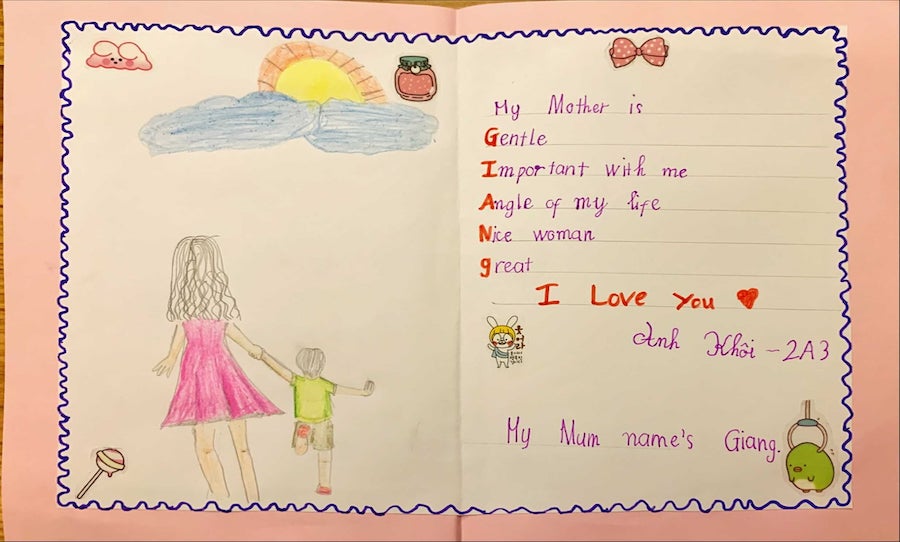 My Mother is
Gentle
Important with me
Angle of my life
Nice woman
great
I Love you
Anh Khôi - 2A3
My Mum name's Giang.